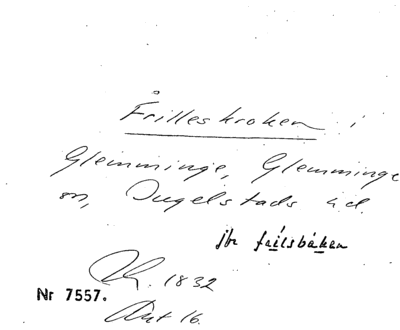 Frilleskroken i
Glemminge, Glemminge
sn, Ingelstads hd.
jbr failsbåken
Lh. 1832
Nr 7557.
Akt 16.